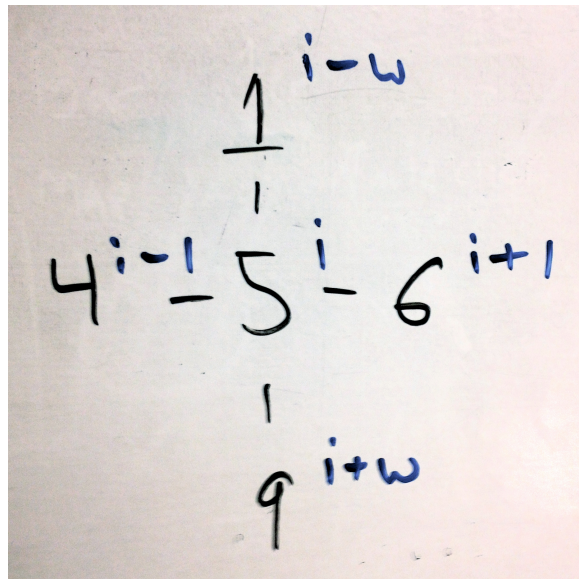 1 i-w
4 i-1 - 5 i - 6 i+1
9 i+w